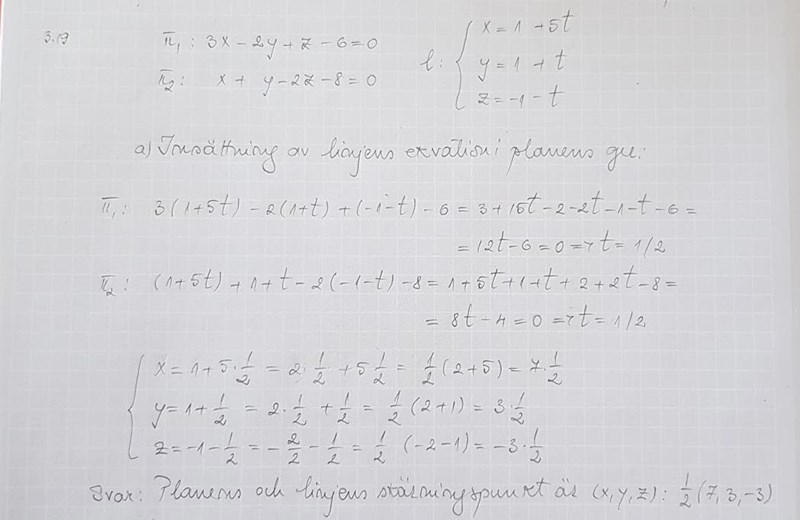 3.19 π₁: 3x - 2y + z - 6 = 0
π₂: x + y - 2z - 8 = 0
l: { x = 1 + 5t
y = 1 + t
z = -1 - t
a) Insättning av linjens ekvation i planens ger:
π₁: 3(1+5t) - 2(1+t) + (-1-t) - 6 = 3 + 15t - 2 - 2t - 1 - t - 6 =
= 12t - 6 = 0 => t = 1/2
π₂: (1+5t) + 1 + t - 2(-1-t) - 8 = 1 + 5t + 1 + t + 2 + 2t - 8 =
= 8t - 4 = 0 => t = 1/2
{ x = 1 + 5·1/2 = 2·1/2 + 5 1/2 = 1/2 (2+5) = 7·1/2
y = 1 + 1/2 = 2·1/2 + 1/2 = 1/2 (2+1) = 3·1/2
z = -1 - 1/2 = -2/2 - 1/2 = 1/2 (-2-1) = -3·1/2
Svar: Planens och linjens skärningspunkt är (x, y, z): 1/2 (7, 3, -3)